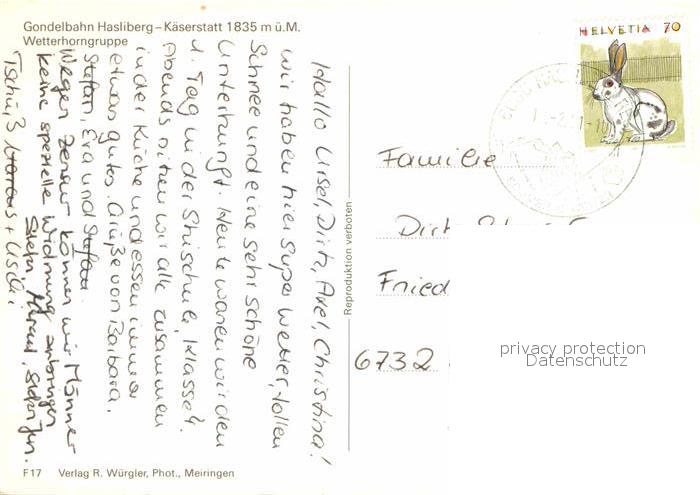 Gondelbahn Hasliberg – Käserstatt 1835 m ü.M.
Wetterhorngruppe
Hallo Ursel, Dirk, Axel, Christina!
Wir haben hier super Wetter, tollen
Schnee und eine sehr schöne
Unterkunft. Heute waren wir den
1. Tag in der Skischule, Klasse!
Abends sitzen wir alle zusammen
in der Küche und essen immer
etwas gutes. Grüße von Barbara,
Stefan, Eva und Stefan.
Wegen Zensur können wir Männer
keine spezielle Widmung anbringen
Tschüß + Uschi
HELVETIA 70
Familie
Dirk
Fried
6732
Reproduktion verboten
privacy protection
Datenschutz
F17 Verlag R. Würgler, Phot., Meiringen